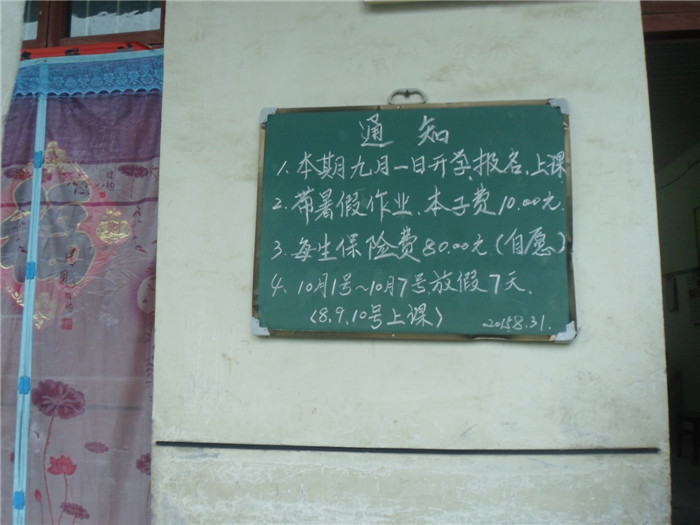 通知
1.本期九月一日开学.报名.上课
2.带暑假作业.本子费10.00元
3.每生保险费80.00元(自愿)
4、10月1号~10月7号放假7天.
(8.9.10号上课)
2015.8.31.